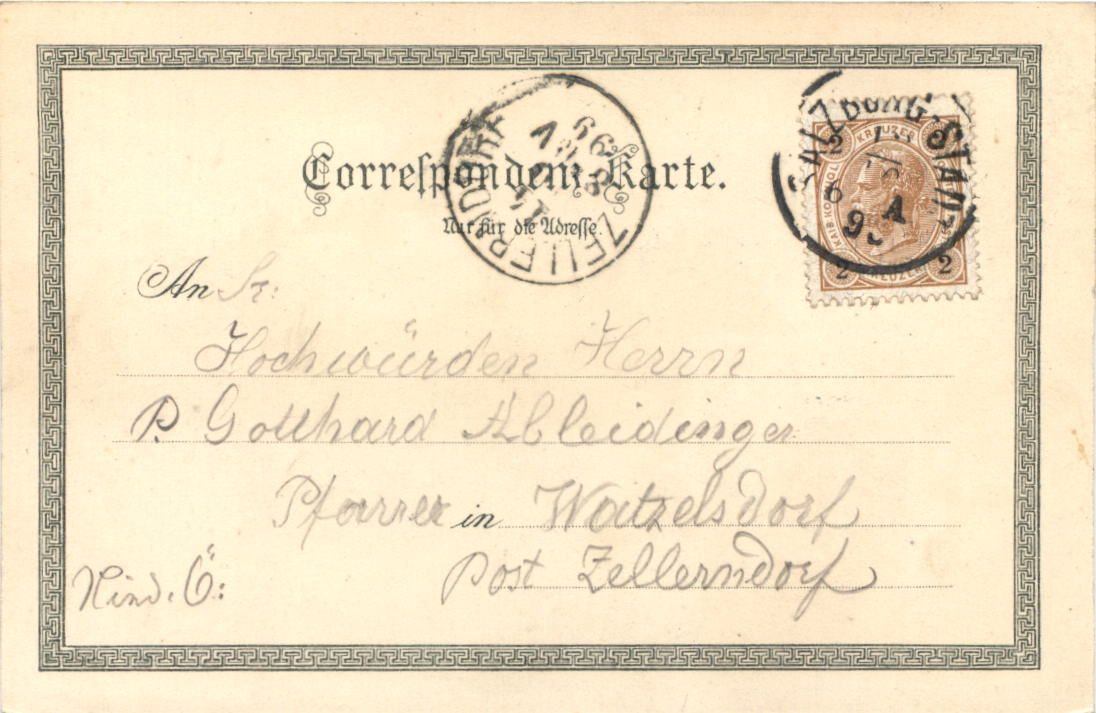 Correspondenz-Karte.
Nur für die Adresse.
ZELLERNDORF
99
SALZBURG-STADT
2 KREUZER 2
2 KREUZER 2
An Sr:
Hochwürden Herrn
P. Gotthard Ableidinger
Pfarrer in Watzelsdorf
Post Zellerndorf
Nied. Ö: